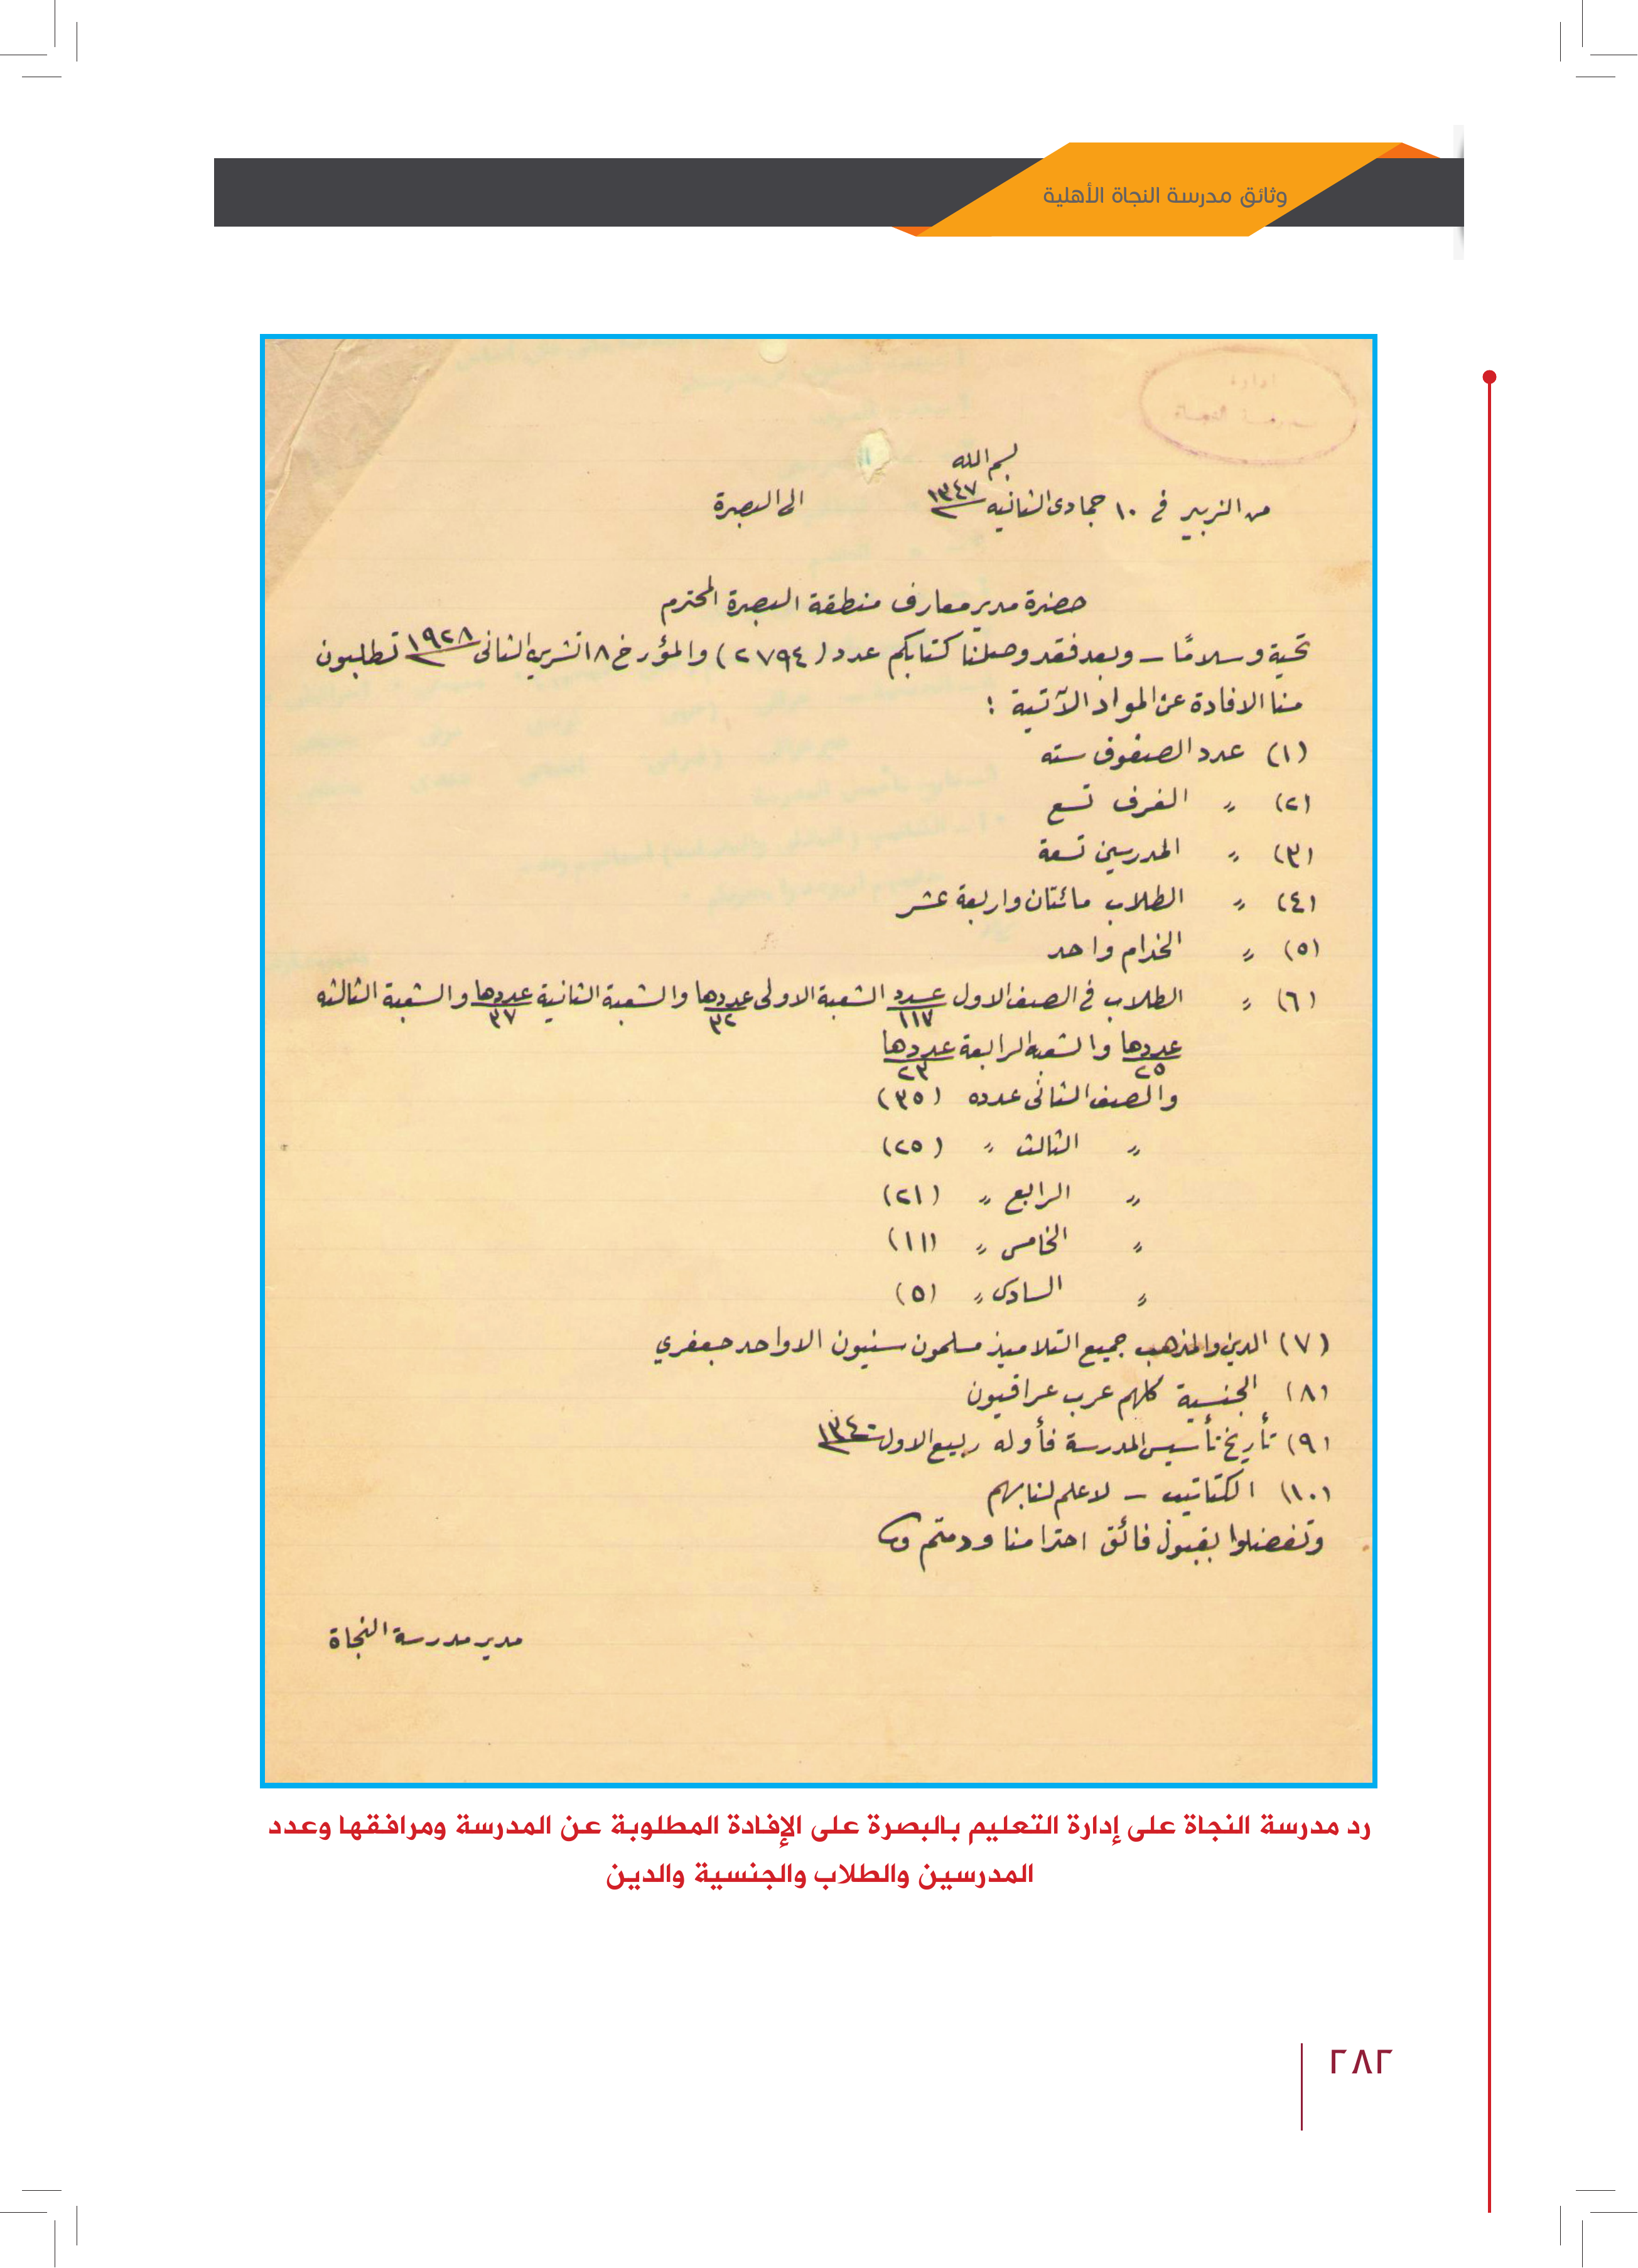 وثائق مدرسة النجاة الأهلية
ادارة
مدرسة النجاة
بسم الله
من الزبير في ١٠ جمادى الثانيه ١٣٤٧ الى البصرة
حضرة مدير معارف منطقة البصرة المحترم
تحية وسلامًا – وبعد فقد وصلنا كتابكم عدد (٢٧٩٤) والمؤرخ ١٨ تشرين الثانى ١٩٢٨ تطلبون
منا الافادة عن المواد الآتية :
(١) عدد الصفوف سته
(٢) 〃 الغرف تسع
(٣) 〃 المدرسين تسعة
(٤) 〃 الطلاب مائتان واربعة عشر
(٥) 〃 الخدام واحد
(٦) 〃 الطلاب في الصف الاول عدد ١١٧ الشعبة الاولى عددها ٣٢ والشعبة الثانية عددها ٣٧ والشعبة الثالثه
عددها ٢٥ والشعبه الرابعة عددها ٢٣
والصف الثانى عدده (٣٥)
〃 الثالث 〃 (٢٥)
〃 الرابع 〃 (٢١)
〃 الخامس 〃 (١١)
〃 السادس 〃 (٥)
(٧) الدين والمذهب جميع التلاميذ مسلمون سنيون الا واحد جعفري
(٨) الجنسية كلهم عرب عراقيون
(٩) تأريخ تأسيس المدرسة فأوله ربيع الاول ١٣٤٠
(١٠) الكتاتيب – لا علم لنا بهم
وتفضلوا بقبول فائق احترامنا ودمتم
مدير مدرسة النجاة
رد مدرسة النجاة على إدارة التعليم بالبصرة على الإفادة المطلوبة عن المدرسة ومرافقها وعدد
المدرسين والطلاب والجنسية والدين
٢٨٢